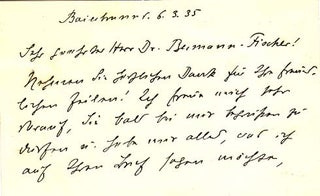 Baierbrunn b. 6.3.35
Sehr geehrter Herr Dr. Bermann-Fischer!
Nehmen Sie herzlichen Dank für Ihre freund-
lichen Zeilen! Ich freue mich sehr
darauf, Sie bald bei mir begrüßen zu
dürfen u. habe mir alles, was ich
auf Ihren Brief sagen möchte,